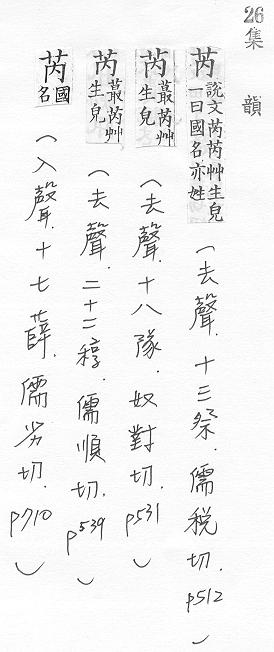 26 集韻
芮 說文芮芮艸生皃一曰國名亦姓(去聲.十三祭.儒稅切.p512)
芮 蕞芮艸生皃(去聲.十八隊.奴對切.p531)
芮 蕞芮艸生皃(去聲.二十二稕.儒順切.p539)
芮 國名(入聲.十七薛.儒劣切.p710)